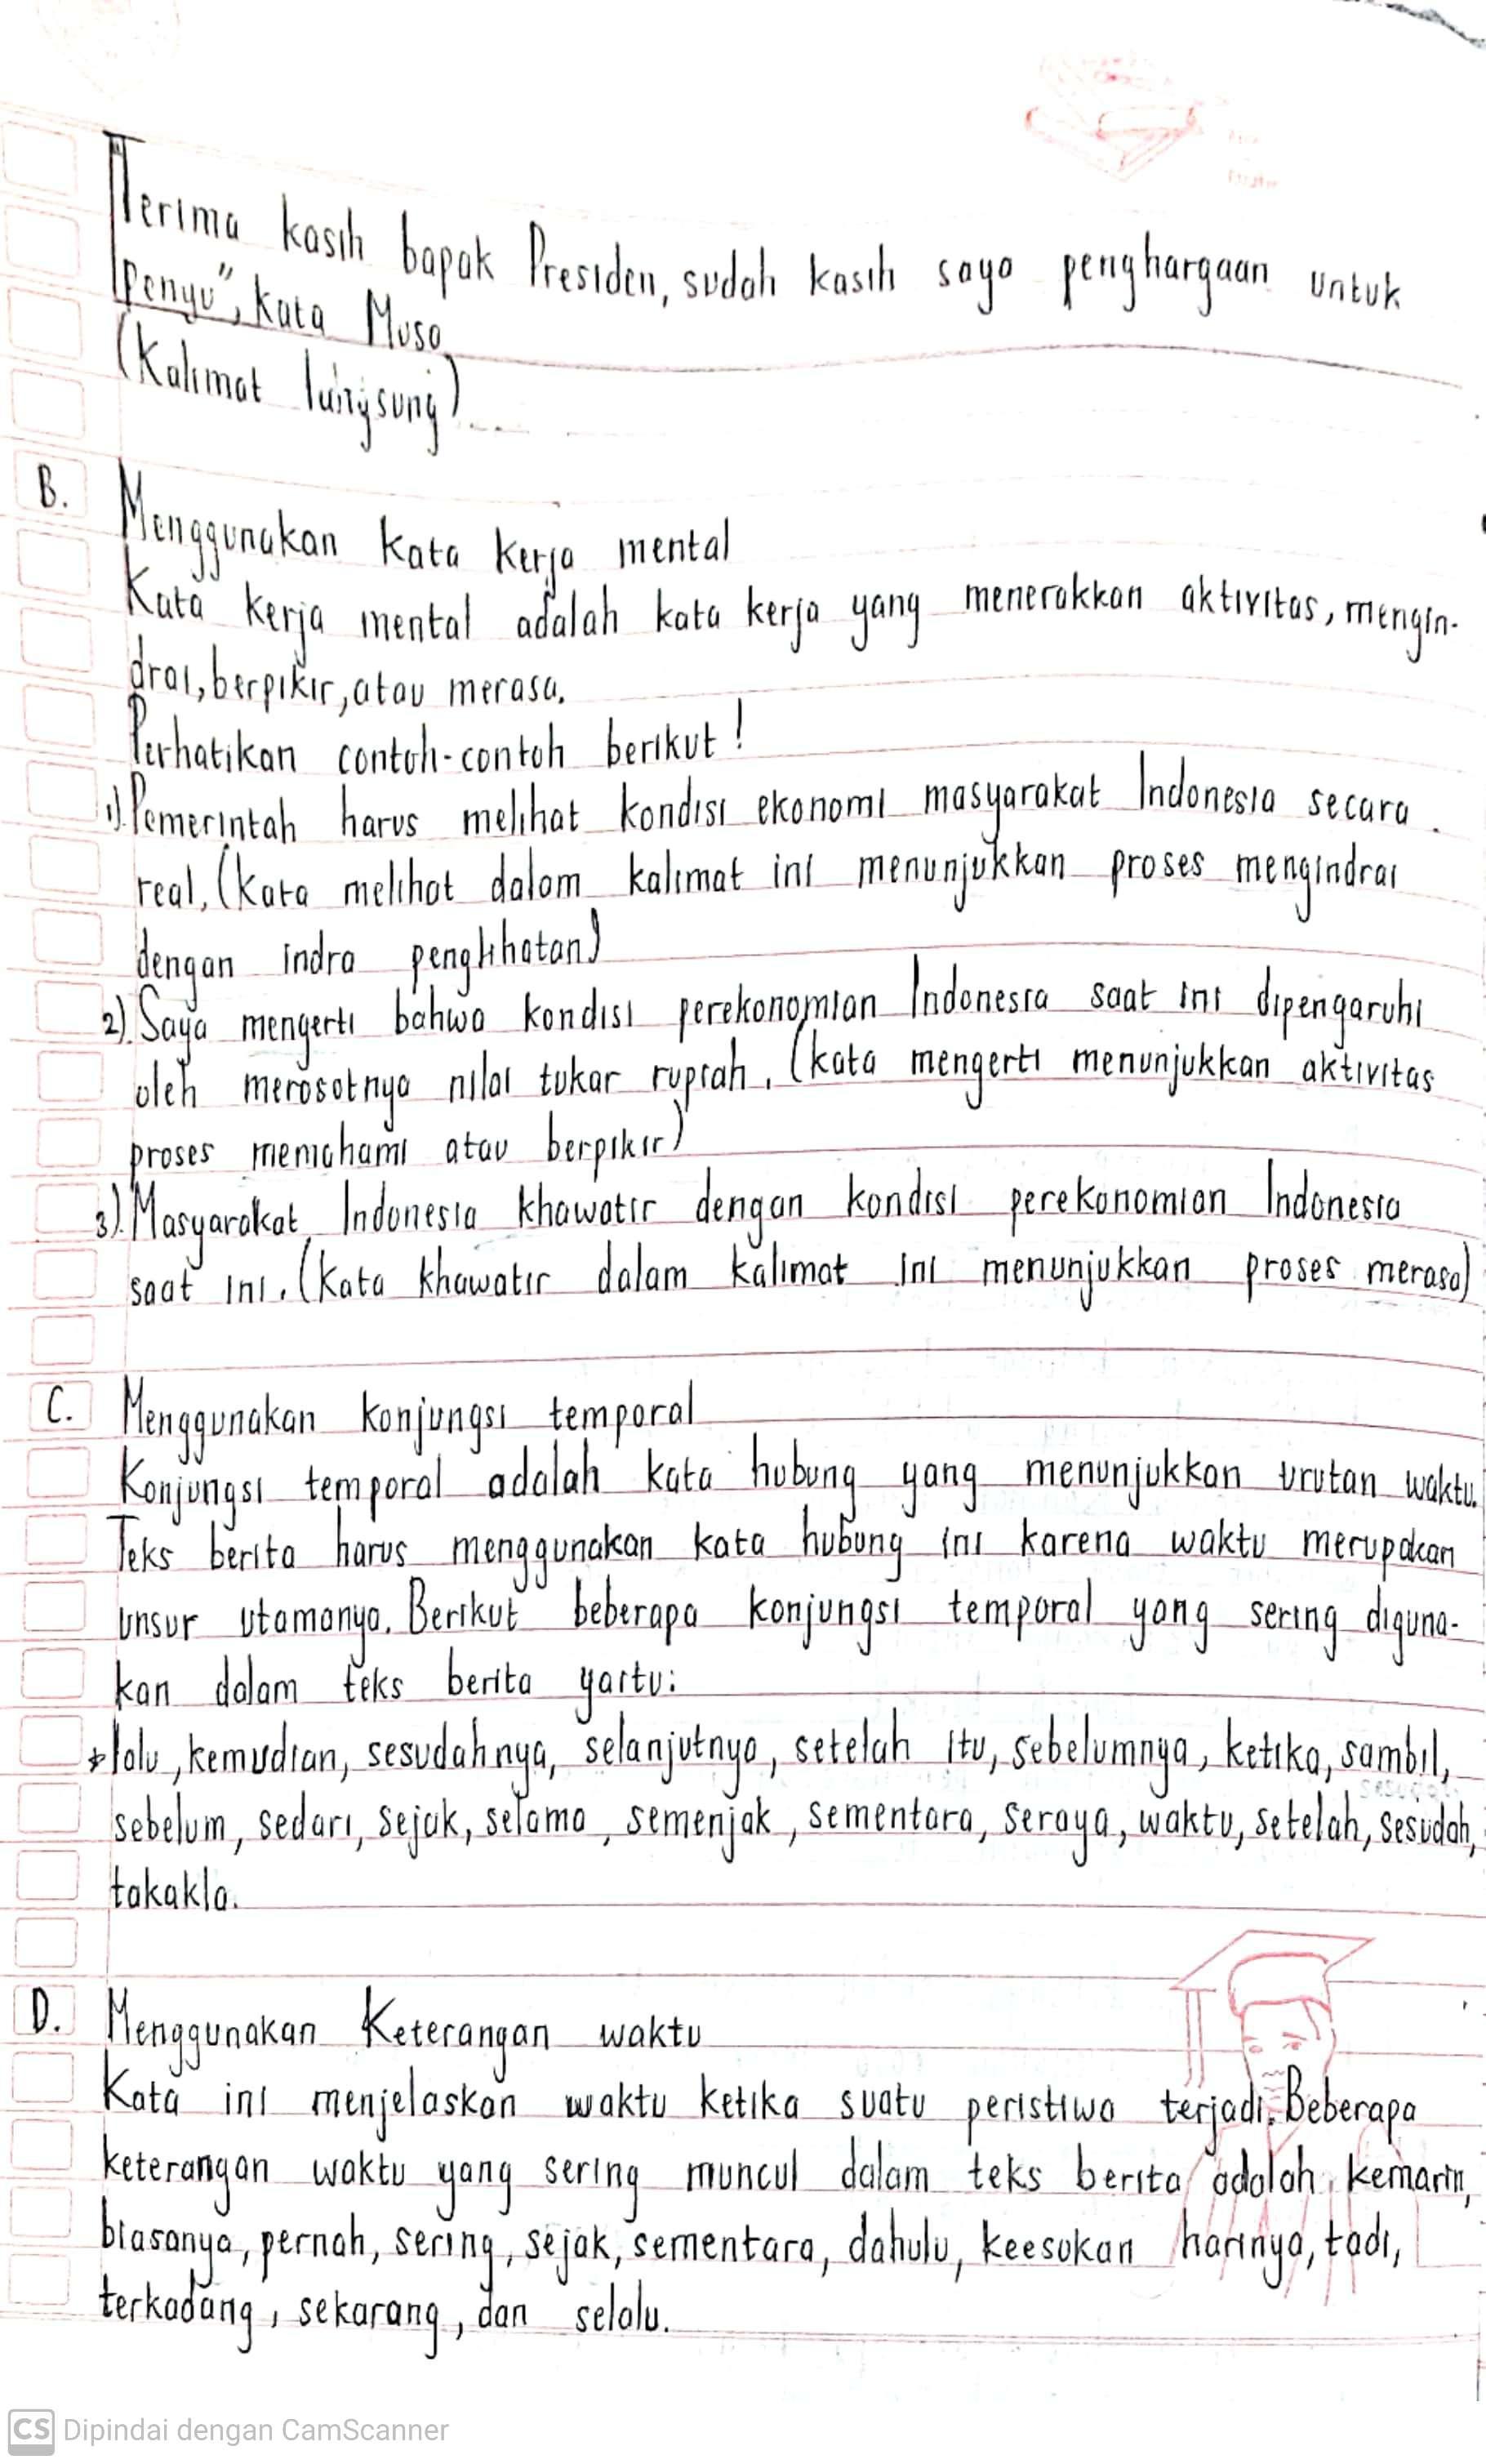 Terima kasih bapak Presiden, sudah kasih saya penghargaan untuk
Penyu", kata Musa
(Kalimat langsung)
B. Menggunakan kata kerja mental
Kata kerja mental adalah kata kerja yang menerakkan aktivitas, mengin-
drai, berpikir, atau merasa.
Perhatikan contoh-contoh berikut!
1). Pemerintah harus melihat kondisi ekonomi masyarakat Indonesia secara
real. (kata melihat dalam kalimat ini menunjukkan proses mengindrai
dengan indra penglihatan)
2). Saya mengerti bahwa kondisi perekonomian Indonesia saat ini dipengaruhi
oleh merosotnya nilai tukar rupiah. (kata mengerti menunjukkan aktivitas
proses memahami atau berpikir)
3). Masyarakat Indonesia khawatir dengan kondisi perekonomian Indonesia
saat ini. (kata khawatir dalam kalimat ini menunjukkan proses merasa)
C. Menggunakan konjungsi temporal
Konjungsi temporal adalah kata hubung yang menunjukkan urutan waktu.
Teks berita harus menggunakan kata hubung ini karena waktu merupakan
unsur utamanya. Berikut beberapa konjungsi temporal yang sering diguna-
kan dalam teks berita yaitu:
* lalu, kemudian, sesudahnya, selanjutnya, setelah itu, sebelumnya, ketika, sambil,
sebelum, sedari, sejak, selama, semenjak, sementara, seraya, waktu, setelah, sesudah,
takakla.
D. Menggunakan Keterangan waktu
Kata ini menjelaskan waktu ketika suatu peristiwa terjadi. Beberapa
keterangan waktu yang sering muncul dalam teks berita adalah kemarin,
biasanya, pernah, sering, sejak, sementara, dahulu, keesokan harinya, tadi,
terkadang, sekarang, dan selalu.
CS Dipindai dengan CamScanner